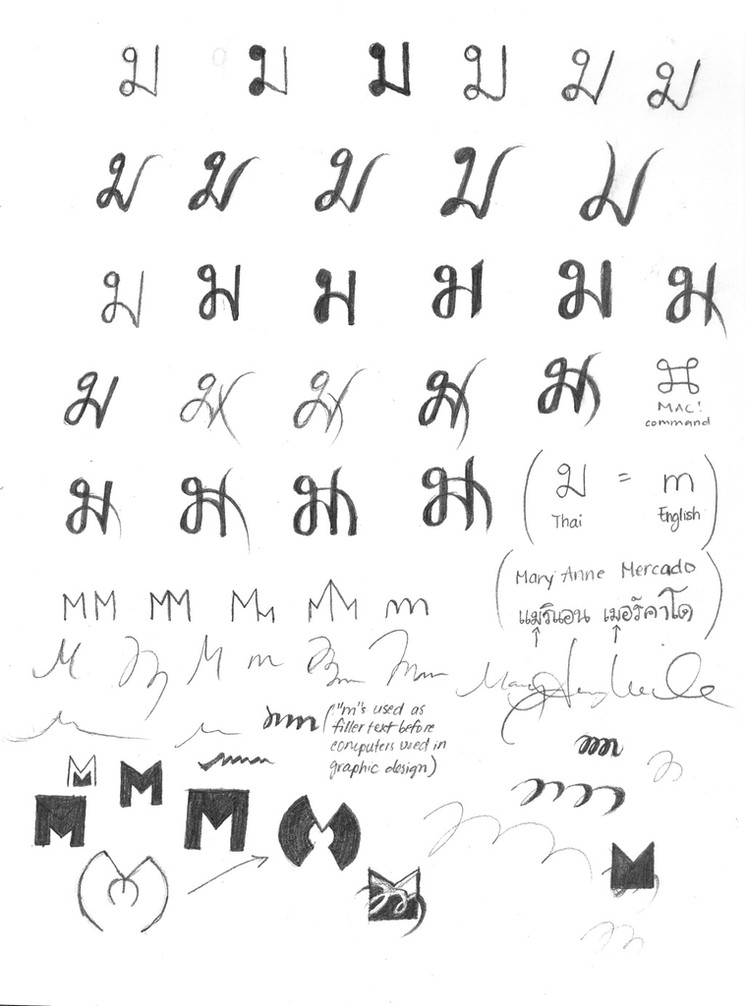 ม ม ม ม ม ม
ม ม ม ม ม
ม ม ม ม ม ม
ม ม ม ม ม ⌘
MAC!
command
ม ม ม ม
(ม = m)
Thai English
MM MM MM MM m
(Mary Anne Mercado
แมริแอน เมอร์คาโด)
M M M m M M
m m m
("m"s used as
filler text before
computers used in
graphic design)
M M
M M
M